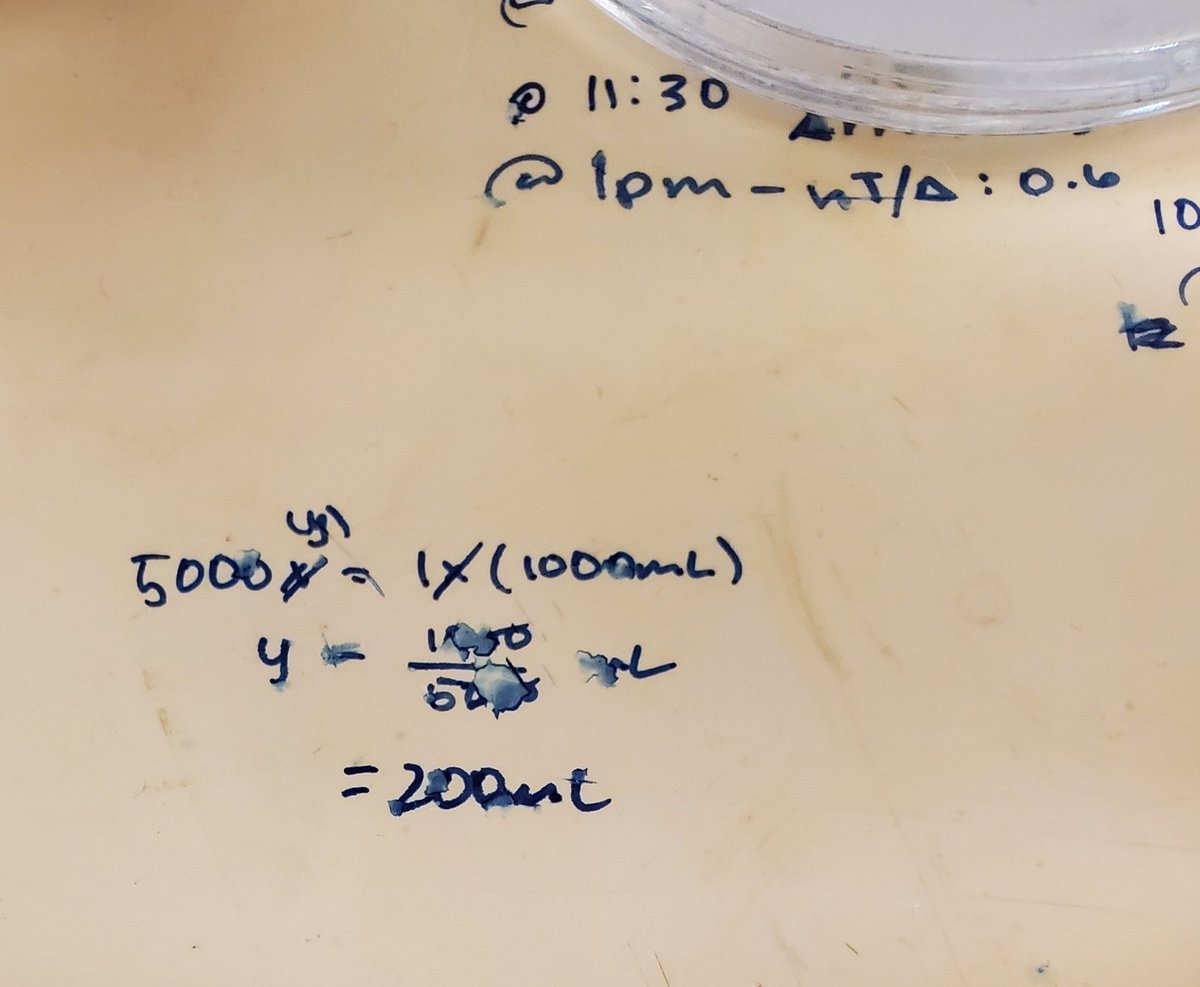 @ 11:30
@ 1pm - wT/Δ: 0.6
10
5000x(y) = 1x(1000mL)
y = 1000/5000 mL
= 200mL